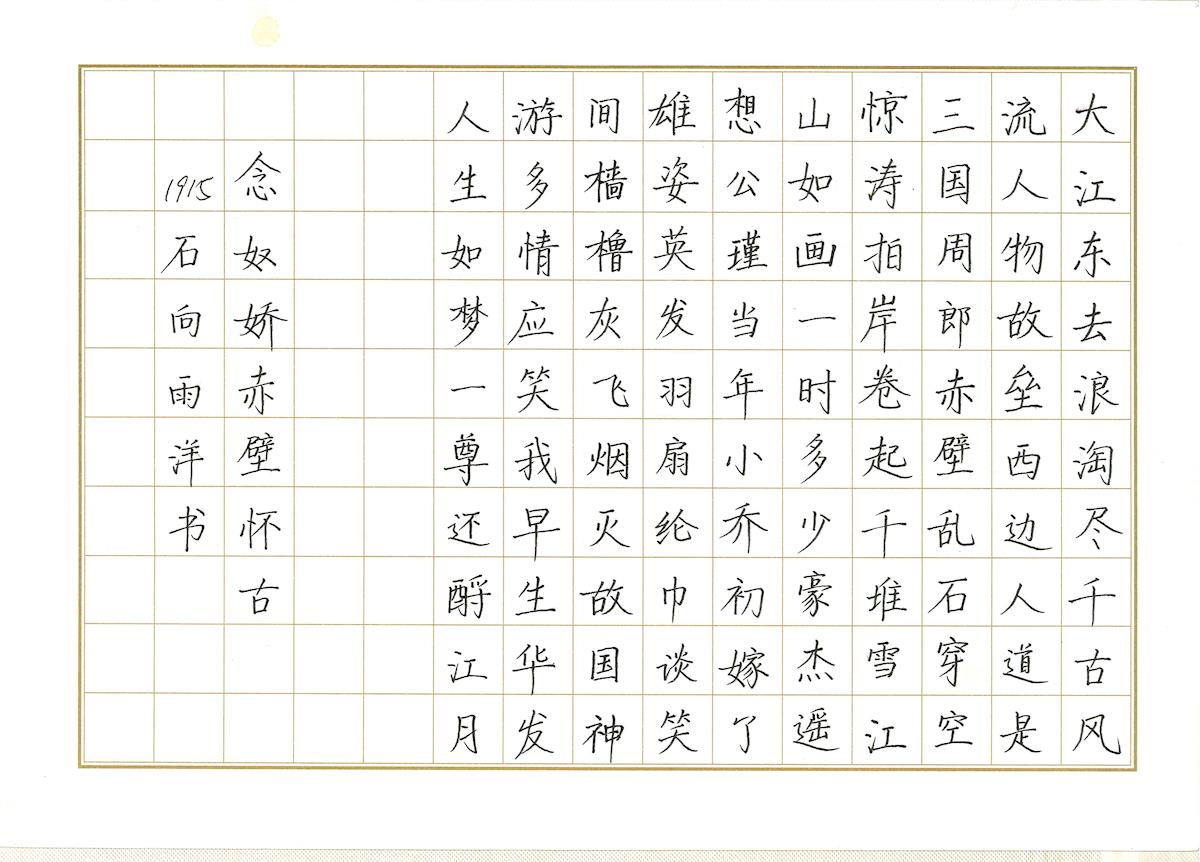 大江东去浪淘尽千古风
流人物故垒西边人道是
三国周郎赤壁乱石穿空
惊涛拍岸卷起千堆雪江
山如画一时多少豪杰遥
想公瑾当年小乔初嫁了
雄姿英发羽扇纶巾谈笑
间樯橹灰飞烟灭故国神
游多情应笑我早生华发
人生如梦一尊还酹江月
念奴娇赤壁怀古
1915石向雨洋书